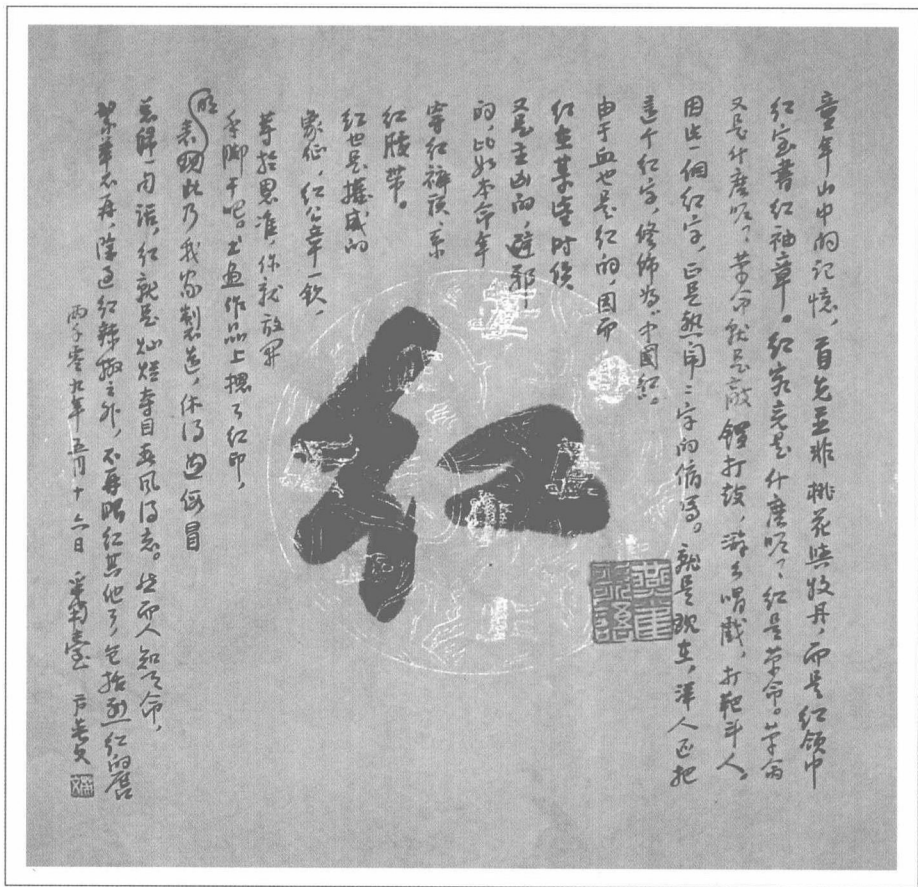 童年山中的记忆，首先並非桃花與牡丹，而是红领巾
红宝書红袖章。红究竟是什麽呢？红是革命。革命
又是什麽呢？革命就是敲锣打鼓，游乡唱戏，打靶斗人。
因此一個红字，正是热闹二字的俗写。就是现在，洋人还把
这个红字，修饰为“中國红”。
由于血也是红的，因而
红在某些时候
又是主凶的，避邪
的，比如本命年
穿红裤衩、系
红腰带。
红也是權威的
象征，红公章一钦，
等於恩准，你就放開
手脚干吧。书画作品上摁了红印，
表明此乃我家製造，休得假冒
总归一句话，红就是灿烂夺目春风得志。然而人知天命，
繁華不再，除过红辣椒之外，不再眼红其他了，包括红的唇
零九年五月十六日
红